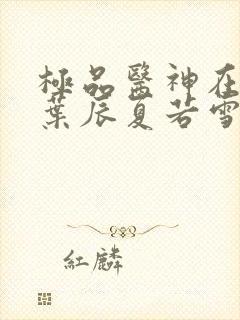 極品醫神在
葉辰夏若雪
紅麟